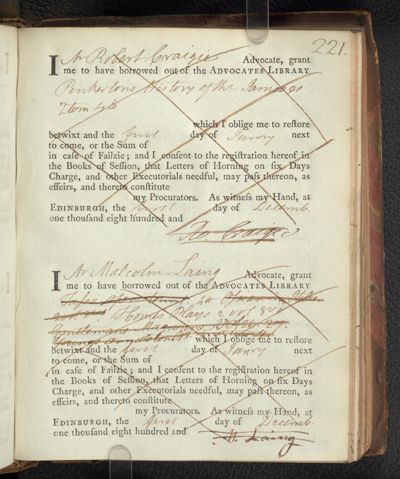 221.
I Mr Robert Craigie Advocate, grant
me to have borrowed out of the ADVOCATES LIBRARY
Pinkertons History of the Jameses
2 tom 4to
which I oblige me to reſtore
betwixt and the first day of Janry next
to come, or the Sum of
in caſe of Failzie; and I conſent to the regiſtration hereof in
the Books of Seſſion, that Letters of Horning on ſix Days
Charge, and other Executorials needful, may paſs thereon, as
effeirs, and thereto conſtitute
my Procurators. As witneſs my Hand, at
EDINBURGH, the first day of Decemb.
one thouſand eight hundred and
Ro. Craigie
I Mr Malcolm Laing Advocate, grant
me to have borrowed out of the ADVOCATES LIBRARY
Plays 2 vol
which I oblige me to reſtore
betwixt and the first day of Janry next
to come, or the Sum of
in caſe of Failzie; and I conſent to the regiſtration hereof in
the Books of Seſſion, that Letters of Horning on ſix Days
Charge, and other Executorials needful, may paſs thereon, as
effeirs, and thereto conſtitute
my Procurators. As witneſs my Hand, at
EDINBURGH, the first day of Decemb.
one thouſand eight hundred and
M. Laing